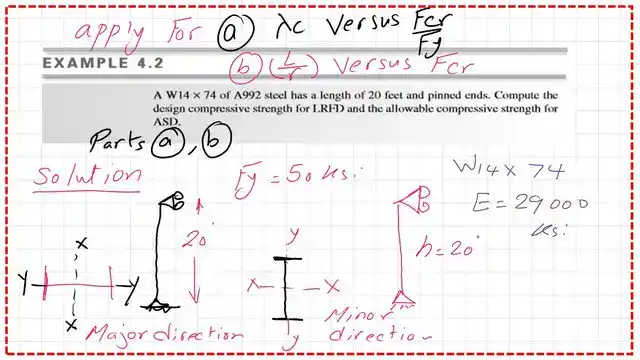 apply For ⓐ λc Versus Fcr/Fy
EXAMPLE 4.2
ⓑ (L/r) Versus Fcr
A W14 × 74 of A992 steel has a length of 20 feet and pinned ends. Compute the
design compressive strength for LRFD and the allowable compressive strength for
ASD.
Parts ⓐ, ⓑ
Solution
Fy = 50 ksi
W14 x 74
E = 29000
ksi
20'
h = 20'
X
Y Y
X
y
X X
y
Major direction
Minor
direction